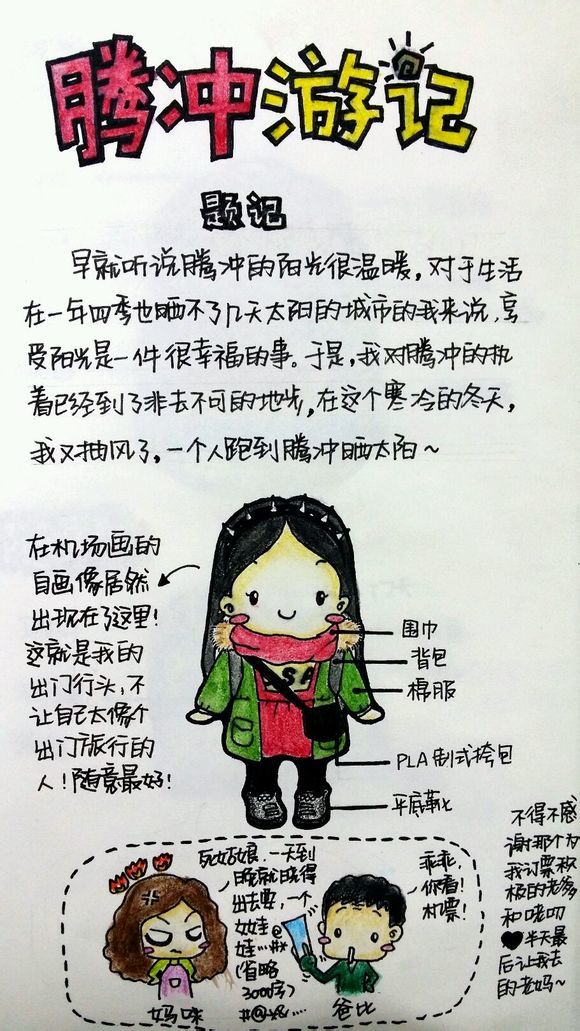 腾冲游记
题记
早就听说腾冲的阳光很温暖，对于生活
在一年四季也晒不了几天太阳的城市的我来说，享
受阳光是一件很幸福的事。于是，我对腾冲的执
着已经到了非去不可的地步，在这个寒冷的冬天，
我又抽风了，一个人跑到腾冲晒太阳～
在机场画的
自画像居然
出现在了这里！
这就是我的
出门行头，不
让自己太像个
出门旅行的
人！随意最好！
围巾
背包
棉服
PLA制式挎包
平底靴
死姑娘，一天到
晚就晓得
出去耍，一个
女娃@
娃…#*
(省略
3000字)
#@*&…
妈咪
乖乖，
你看！
机票！
爸比
不得不感
谢那个为
我订票积
极的老爹
和唠叨
♥半天最
后让我去
的老妈～